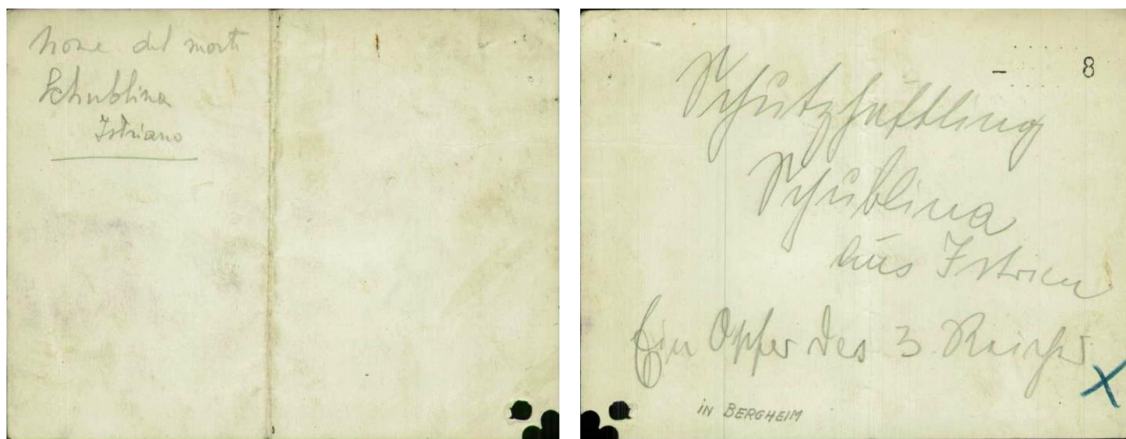 nome del morto
Schublina
Istriano
- 8
Schutzhäftling
Schublina
aus Istrien
Ein Opfer des 3. Reiches
X
in BERGHEIM